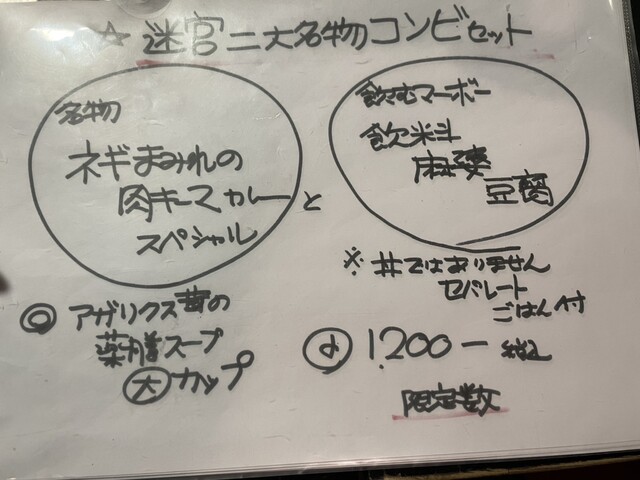 ☆ 迷宮二大名物コンビセット
名物
ネギまみれの
肉キーマカレー
スペシャル
と
飲むマーボー
飲料
麻婆
豆腐
※丼ではありません
セパレート
ごはん付
◎ アガリクス茸の
薬膳スープ
大カップ
1.200ー 税込
限定数